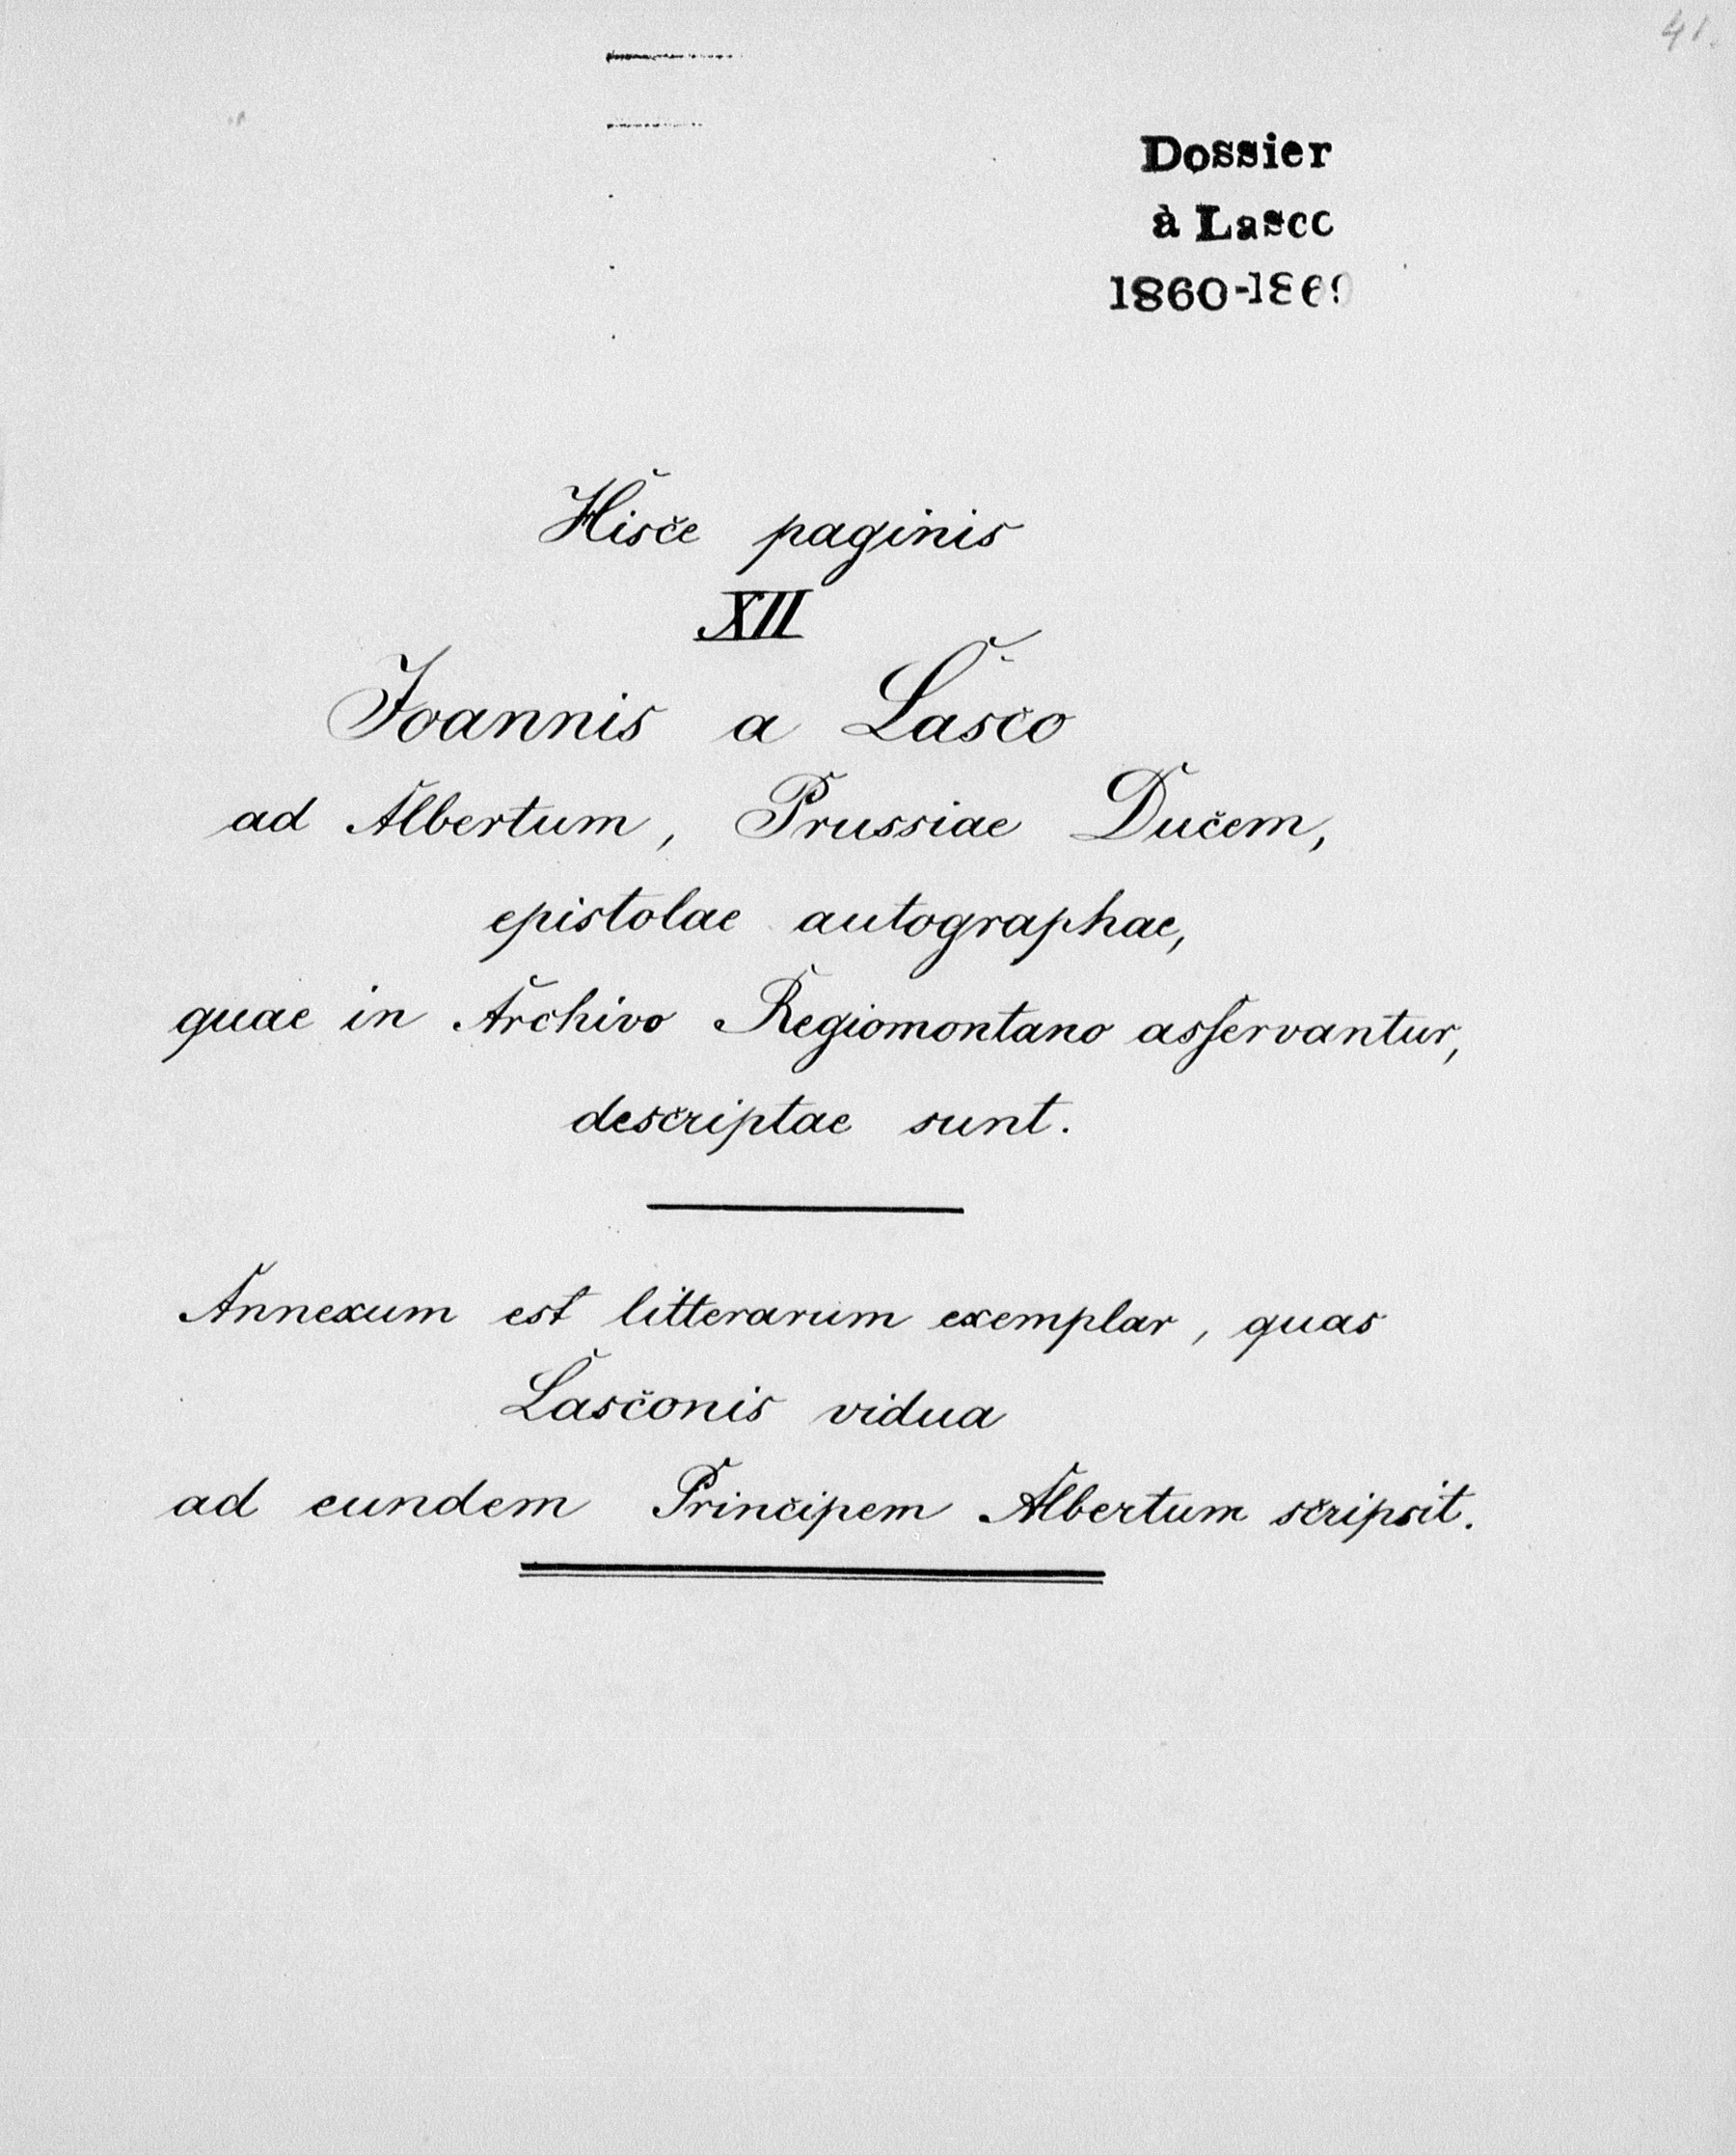 41.
Dossier
à Lasco
1860-1869
Hisce paginis
XII
Joannis a Lasco
ad Albertum, Prussiae Ducem,
epistolae autographae,
quae in Archivo Regiomontano asservantur,
descriptae sunt.
Annexum est litterarum exemplar, quas
Lasconis vidua
ad eundem Principem Albertum scripsit.